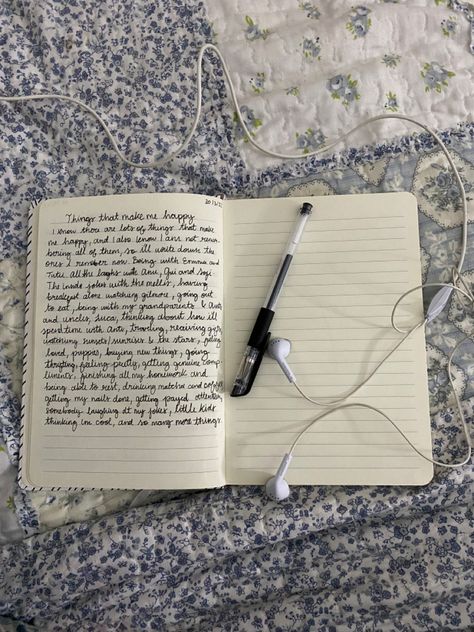 Things that make me happy
I know there are lots of things that make
me happy, and I also know I am not remem
bering all of them, so ill write down the
ones I remember now. Being with Emma and
Tutu. All the laughs with Anu, Gui and
The inside jokes with the having
breakfast alone watching gilmore, going out
to eat, being with my grandparents &
and uncles, thinking about how ill
spend time with traveling, receiving gifts
watching sunsets/sunrises & the stars,
loved, puppies, buying new things, going
thrifting, feeling pretty, getting genuine comp
liments, finishing all my homework and
being able to rest, drinking matcha and coffee
getting my nails done, getting payed attention
somebody laughing at my jokes, little kids
thinking im cool, and so many more things.